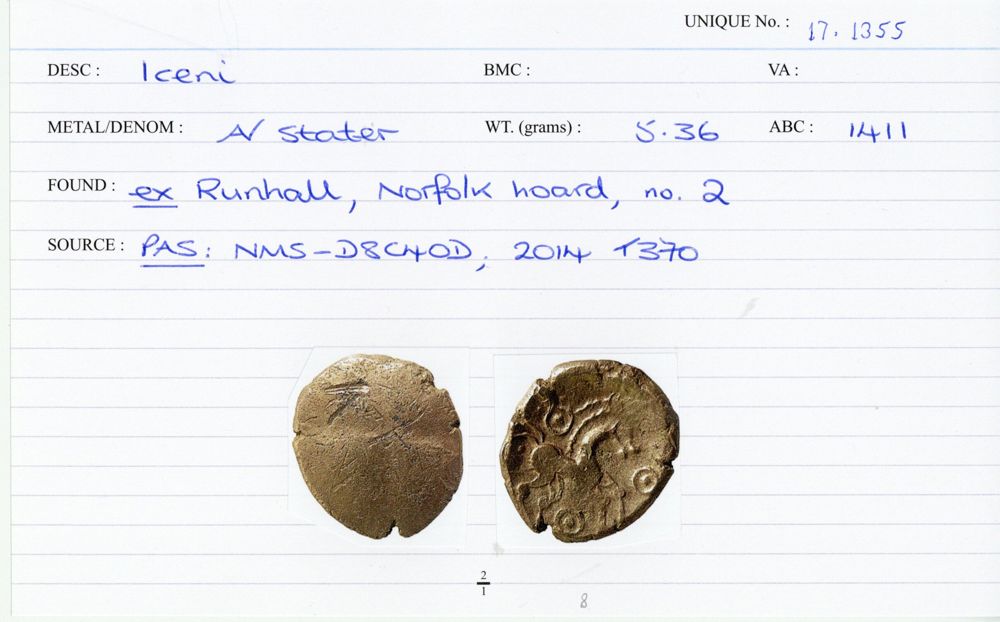 UNIQUE No. : 17. 1355
DESC : Iceni BMC : VA :
METAL/DENOM : A/ stater WT. (grams) : 5.36 ABC : 1411
FOUND : ex Runhall, Norfolk hoard, no. 2
SOURCE : PAS: NMS-D8C40D; 2014 T370
2
1
8